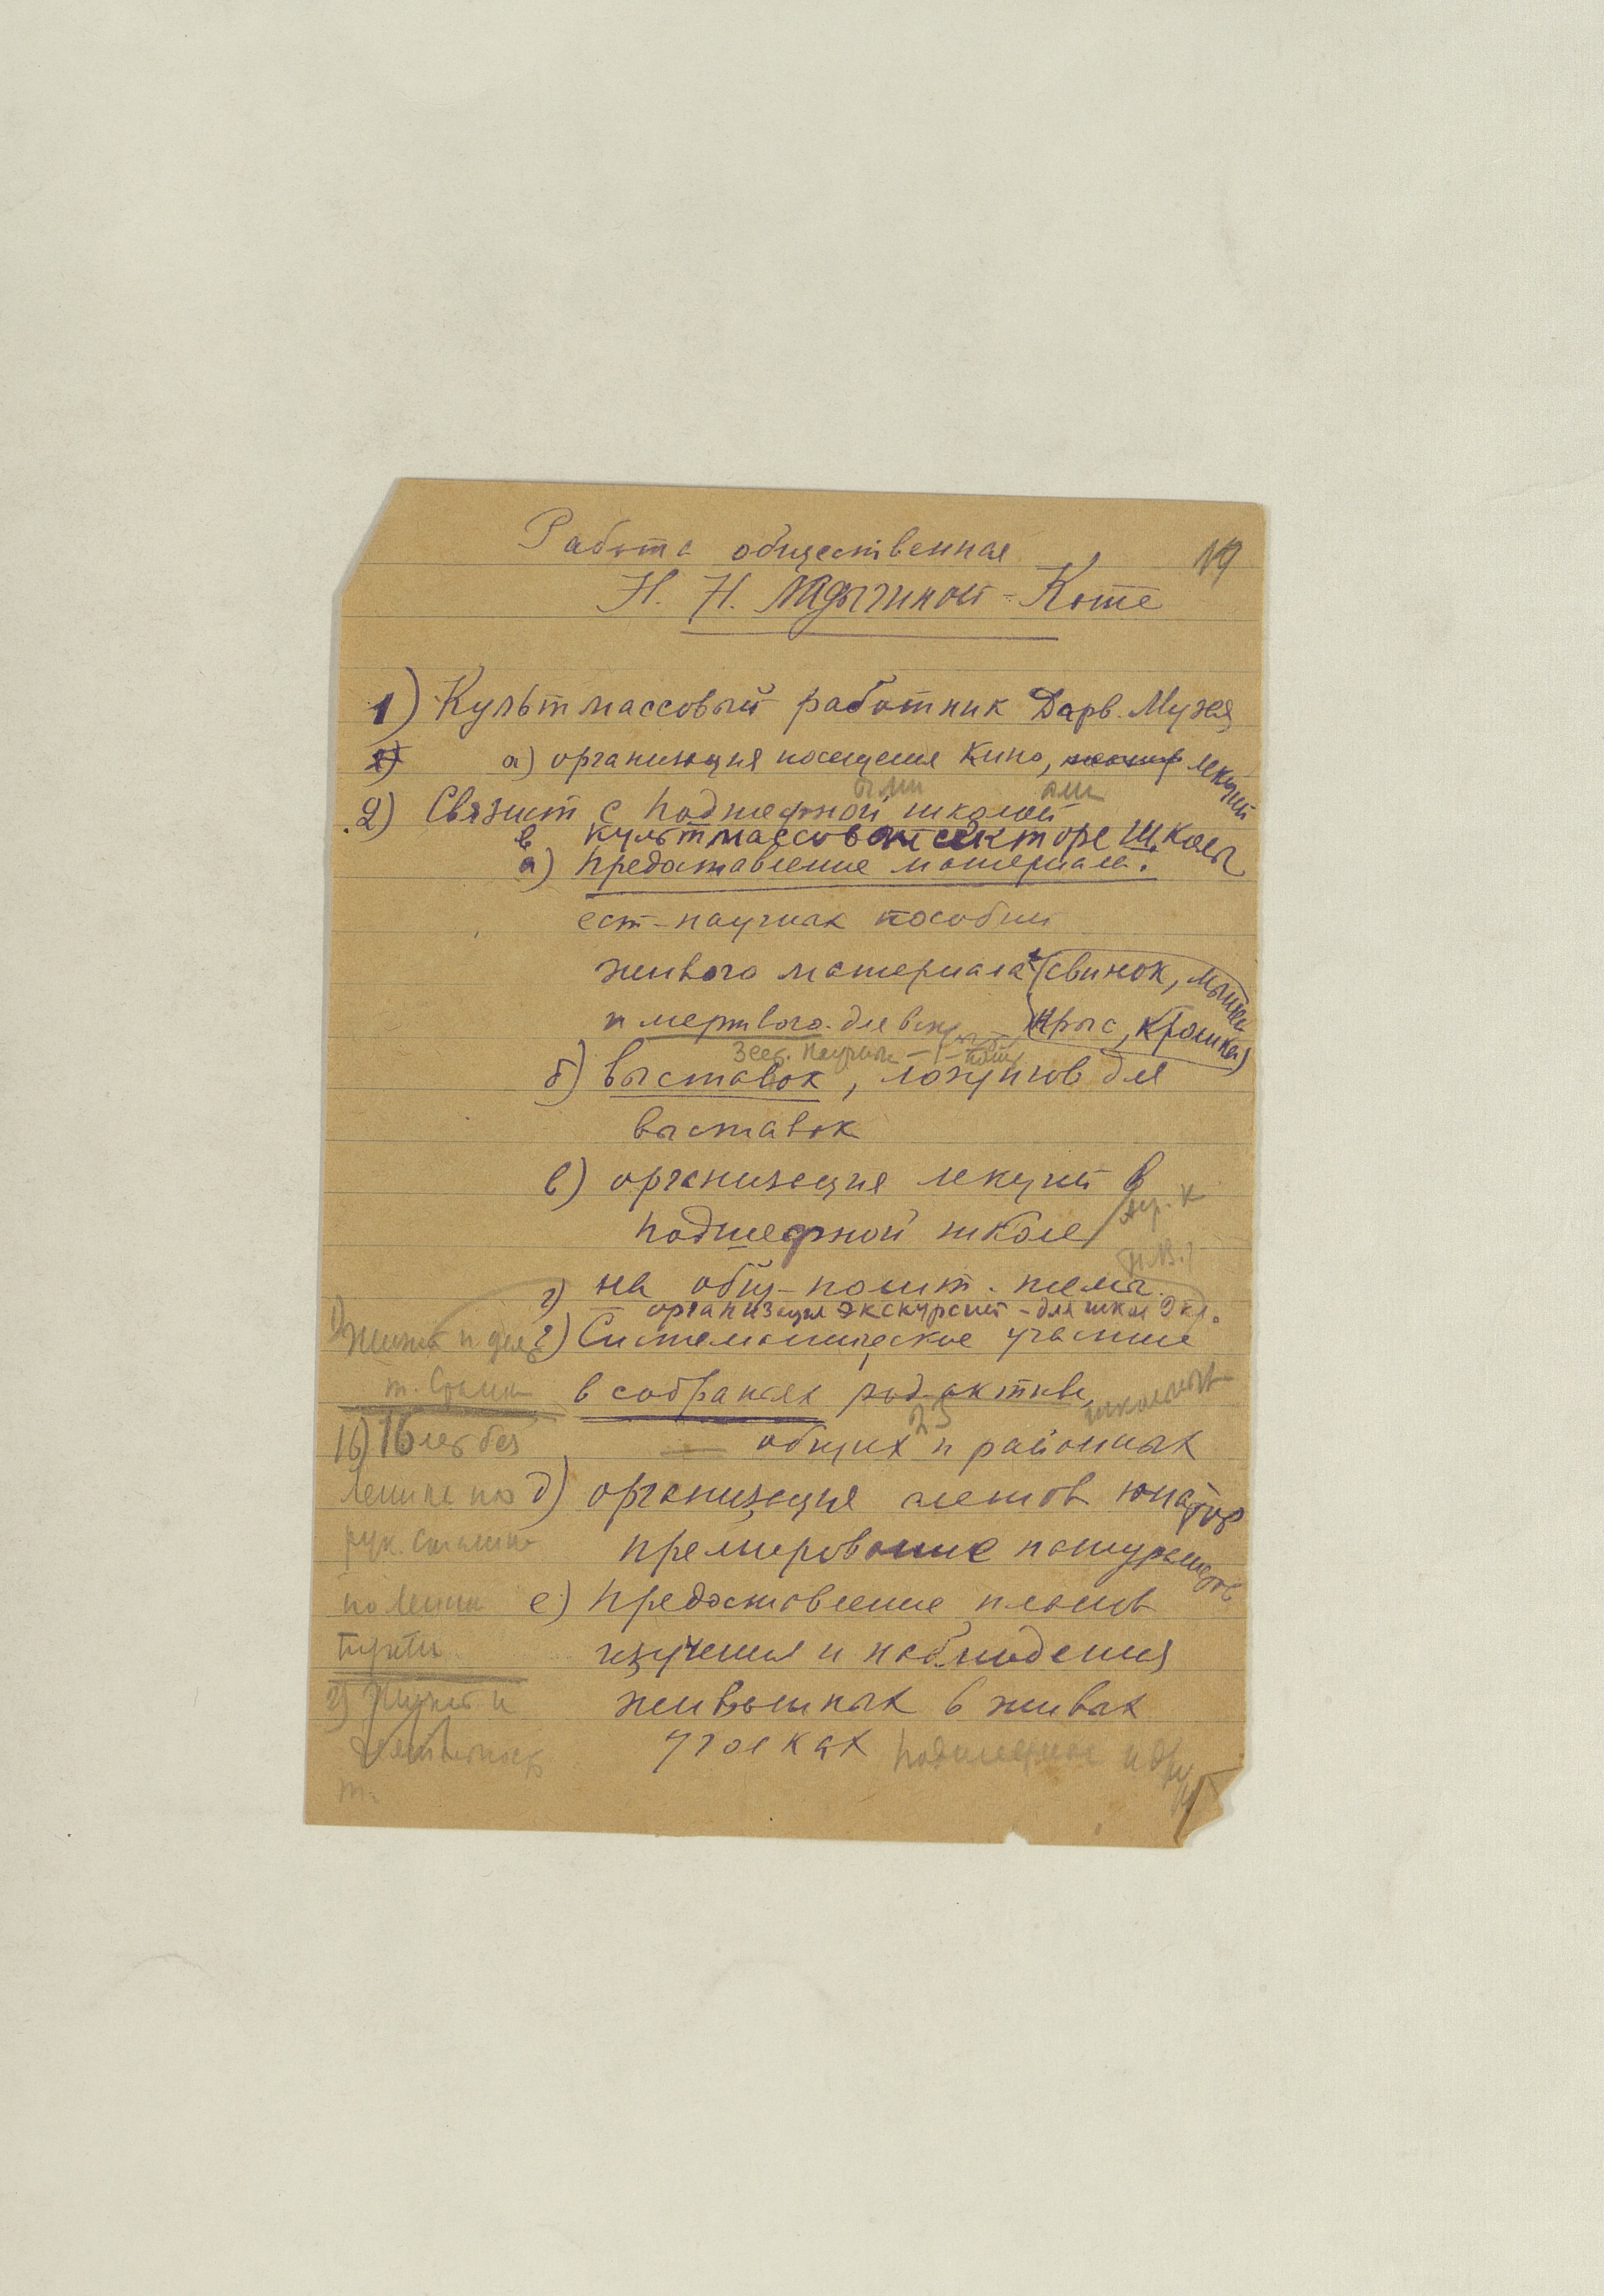 Работа общественная
19
Н. Н. Ладыгиной-Котс
1) Культмассовый работник Дарв. Музея
а) организация посещения кино, лекций
2) Связист с подшефной школой
выми ами
в культмассовом секторе школы
а) предоставление материала:
ест-научных пособий
живого материала (свинок, мышей
крыс, кролика)
и мертвого для
б) выставок, лозунгов для
выставок
в) организация лекций в
подшефной школе
на общ-полит. темы
г) организация экскурсий - для школ
г) Систематическое участие
в собраниях род. актива,
школьных
общих и районных
23
д) организация слетов юнатов
премирование натуралистов
е) предоставление планов
изучения и наблюдения
животных в живых
уголках подшефной и др
1) Жизнь и деят
т. Сталин
1б) 16 лет без
Ленина под
рук. Сталина
по Ленин
пути
2) Жизнь и
деятельность
т.